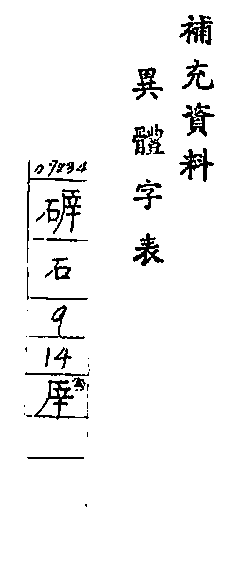 補充資料
異體字表
07834
石
9
14
厗